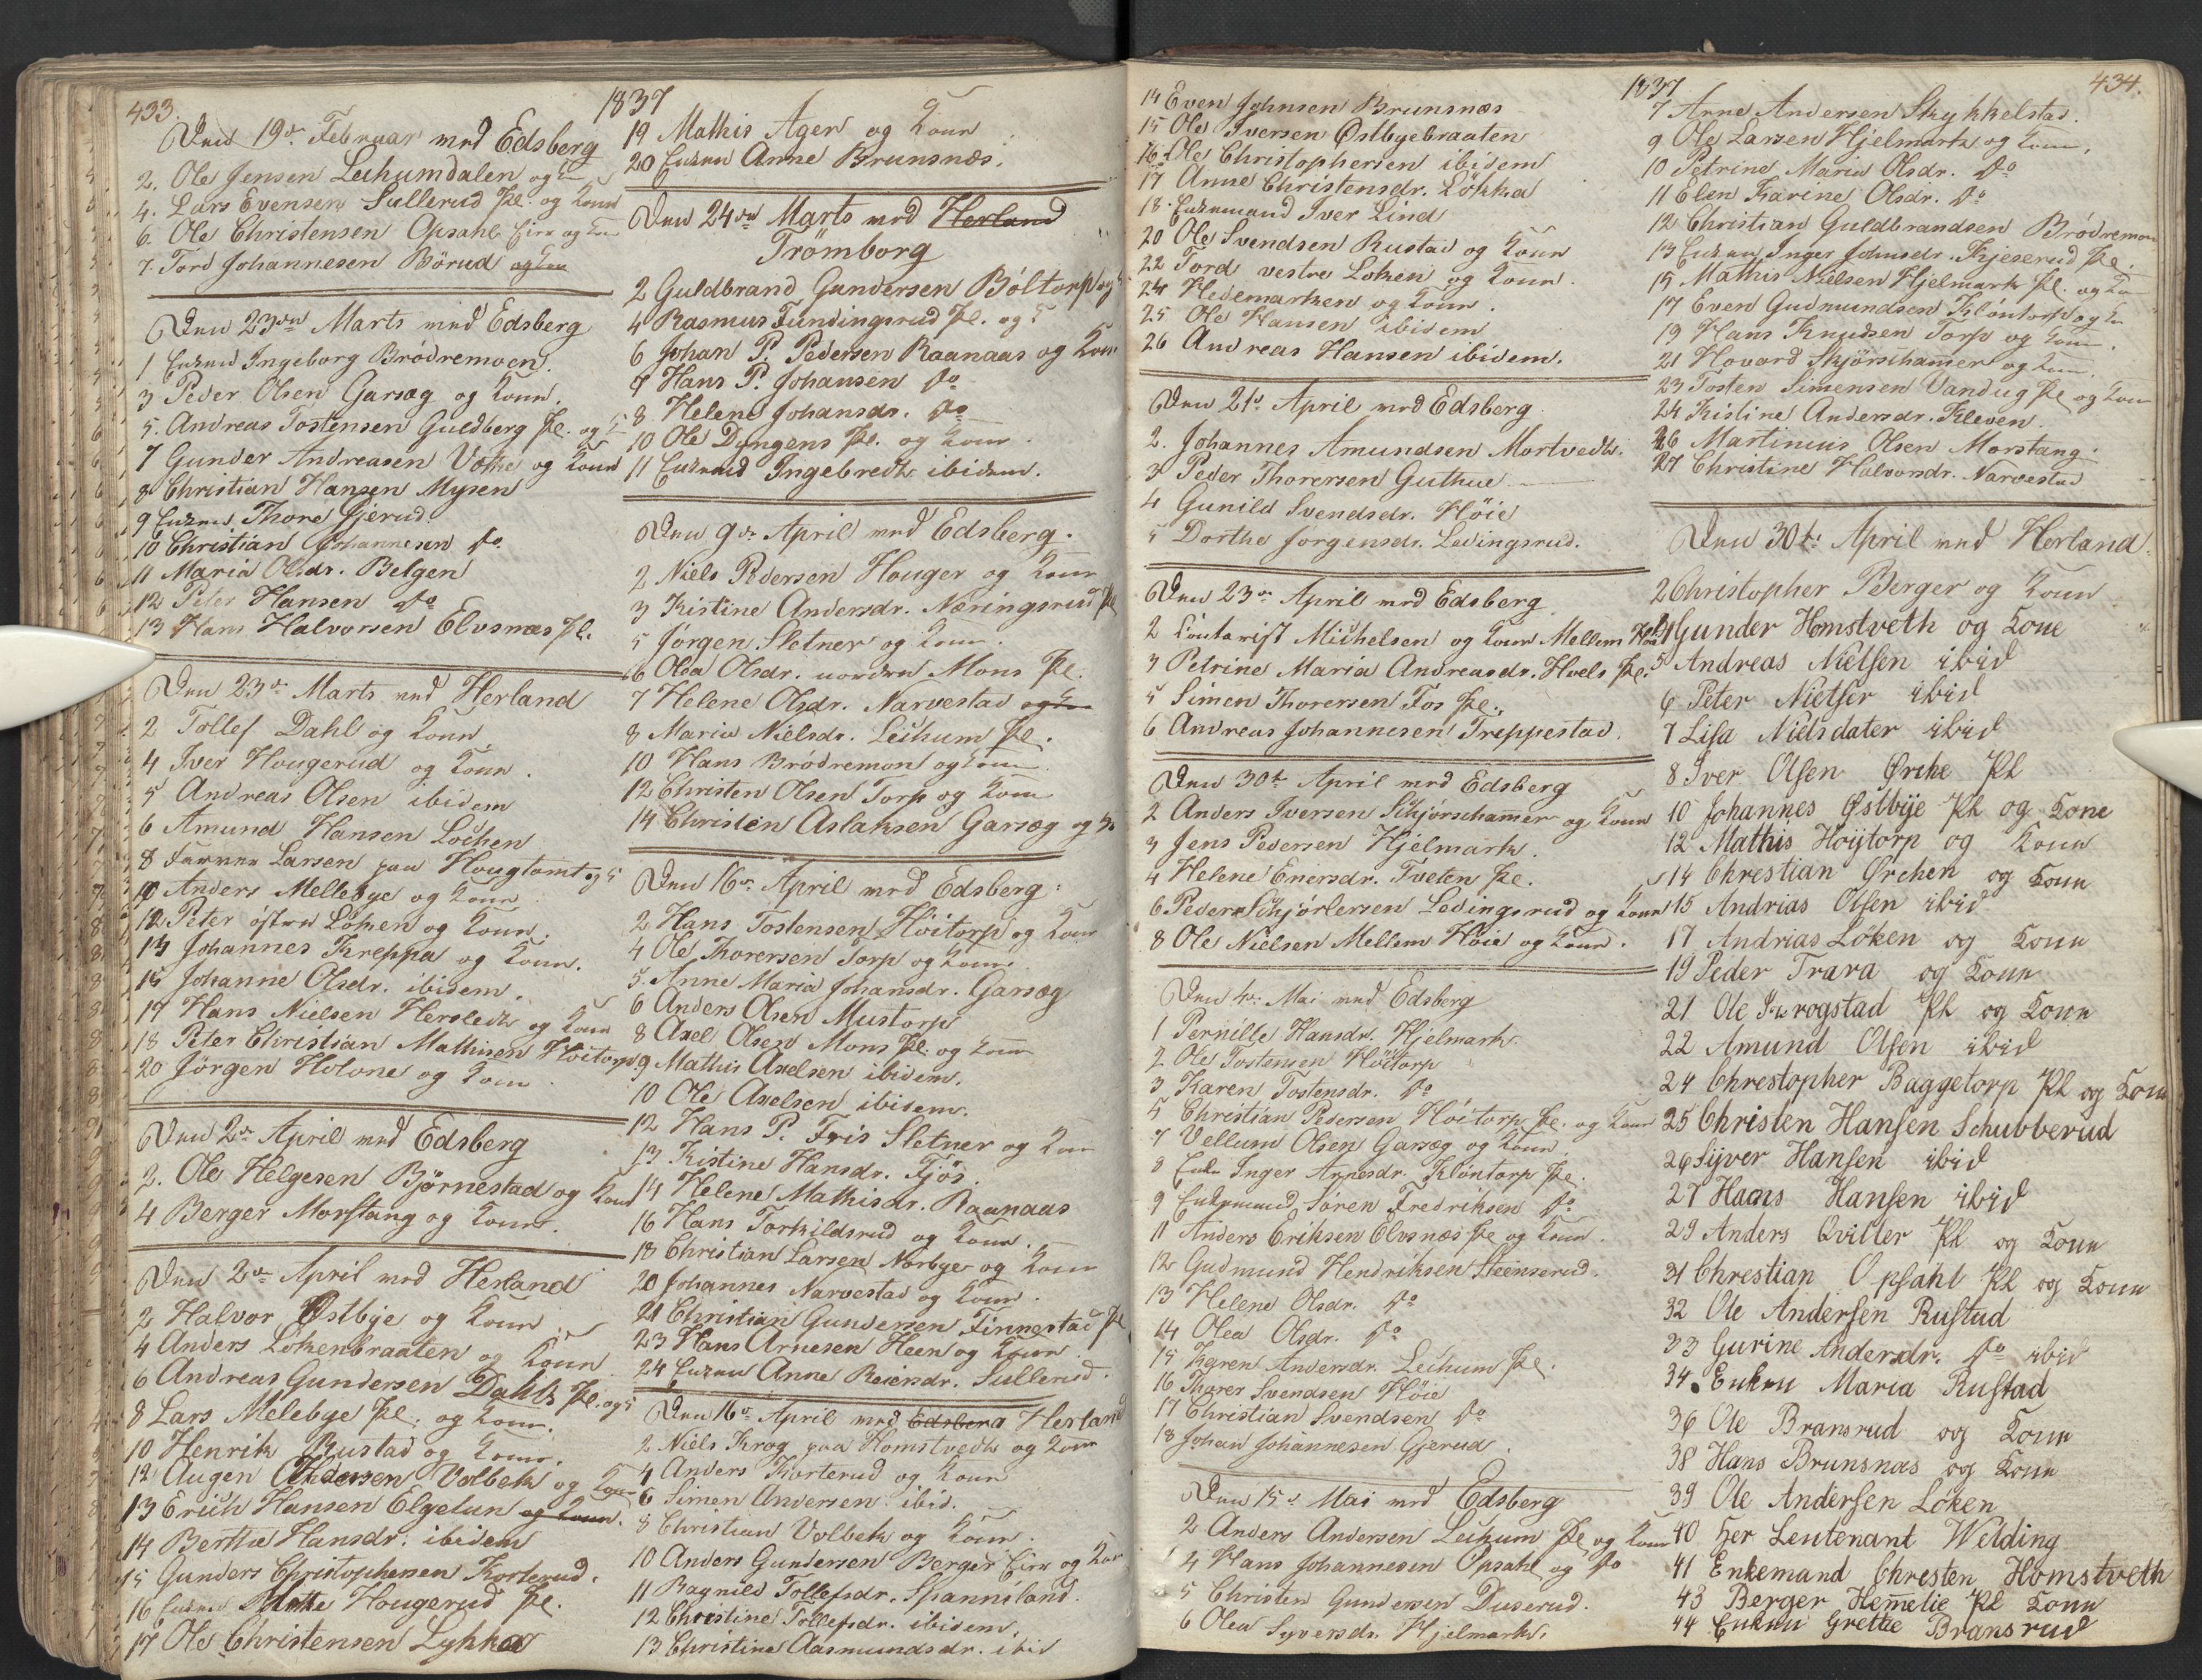 433.
1837
Den 19de Februar ved Edsberg
2. Ole Jensen Lechumdalen og K
4. Lars Evensen Sullerud Pl. og Kone
6. Ole Christensen Opsahl Eier og Kone
7. Tord Johannesen Börud og Kone
Den 23de Marts ved Edsberg
1 Enken Ingeborg Brödremoen.
3 Peder Olsen Garsæg og Kone.
5. Andreas Tostensen Guldberg Pl. og K
7 Gunder Andreasen Votne og Kone
8 Christian Hansen Mysen
9 Enken Thore Gjerud.
10 Christian Johannesen Do
11 Maria Olsdr. Belgen
12 Peter Hansen Do
13 Hans Halvorsen Elvsnæs Pl.
Den 23de Marts ved Herland
2 Tollef Dahl og Kone
4 Iver Hougerud og Kone.
5 Andreas Olsen ibidem
6 Amund Hansen Löchen
8 Larsen paa Hougtomt og K
10 Anders Mellebye og Kone
12 Peter östre Löken og Kone.
14 Johannes Kreppa og Kone.
15 Johanne Olsdr. ibidem.
17 Hans Nielsen Hersleth og Kone
18 Peter Christian Mathisen Höitorp
20 Jörgen Holone og Kone.
Den 2de April ved Edsberg
2. Ole Helgesen Björnestad og Kone
4 Berger Morstang og Kone.
Den 2de April ved Herland
2 Halvor Østbye og Kone
4 Anders Lökenbraaten og Kone
6 Andreas Gundersen Dahls Pl. og K
8 Lars Melebye Pl. og Kone.
10 Henrik Rustad og Kone.
12 Augen Andersen Volbek og Kone
13 Erich Hansen Elgetun og Kone.
14 Berthe Hansdr. ibidem
15 Gunder Christophersen Korterud.
16 Enken Mette Hougerud Pl.
17 Ole Christensen Lykka
19 Mathis Ager og Kone
20 Enken Anne Brunsnæs.
Den 24de Marts ved Herland
Trömborg
2 Guldbrand Gundersen Böltorp og K
4 Rasmus Fundingsrud Pl. og K
6 Johan P. Pedersen Raanaas og Kone
7 Hans P. Johansen Do
8 Helene Johansdr. Do
10 Ole Dyngens Pl. og Kone.
11 Enken Ingebreth ibidem.
Den 9de April ved Edsberg.
2 Niels Pedersen Houger og Kone
3 Kistine Andersdr. Næringsrud Pl
5 Jörgen Sletner og Kone.
6 Olea Olsdr. nordre Mons Pl.
7 Helene Olsdr. Narvestad og Kone
8 Maria Nielsdr. Leihum Pl.
10 Hans Brödremon og Kone
12 Christen Olsen Torp og Kone
14 Christen Aslaksen Garsæg og K
Den 16de April ved Edsberg:
2 Hans Tostensen Höitorp og Kone
4 Ole Thorersen Torp og Kone
5. Anne Maria Johansdr. Garsæg
6 Anders Olsen Mustorp
8 Axel Olsen Mons Pl. og Kone
9 Mathis Axelsen ibidem.
10 Ole Axelsen ibidem.
12 Hans P. Friis Sletner og Kone
13 Kistine Hansdr. Fjös.
14 Helene Mathisdr. Raanaas
16 Hans Torkildsrud og Kone.
18 Christian Larsen Nærbye og Kone
20 Johannes Narvestad og Kone.
21 Christian Gundersen Finnestad Pl
23 Hans Arnesen Heen og Kone.
24 Enken Anne Reiersdr. Sullerud.
Den 16de April ved Edsberg Herland
2 Niels Krog paa Homstvedt og Kone
4 Anders Korterud og Kone
6 Simen Andersen ibid.
8 Christian Volbek og Kone.
10 Anders Gundersen Berger Eier og Kone
11 Ragnild Tollefsdr. Spannisland.
12 Christine Tollefsdr. ibidem.
13 Christine Aasmundsdr. ibid
434.
1837
14 Even Johnsen Brunsnæs
15 Ole Iversen Østbyebraaten
16 Ole Christophersen ibidem
17 Anne Christensdr. Lökka
18 Enkemand Iver Lind
20 Ole Svendsen Rustad og Kone
22 Tord vestre Loken og Kone.
24 Hedemarken og Kone.
25 Ole Hansen ibidem
26 Andreas Hansen ibidem.
Den 21de April ved Edsberg
2. Johannes Amundsen Mortvedt.
3 Peder Thorersen Guthue
4 Gunild Svendsdr. Höie
5 Dorthe Jorgensdr. Ledingsrud.
Den 23de April ved Edsberg
2 Contorist Michelsen og Kone Mellem Höie
3 Petrine Maria Andreasdr. Hvels Pl.
5 Simen Thorersen Fos Pl.
6 Andreas Johannesen Treppestad.
Den 30te April ved Edsberg
2 Anders Iversen Schjörshamer og Kone
3 Jens Pedersen Hjelmark.
4 Helene Enersdr. Tveten Pl.
6 Peder Schjörlersen Ledingsrud og Kone
8 Ole Nielsen Mellem Höie og Kone.
Den 4de Mai ved Edsberg
1 Pernille Hansdr. Hjelmark.
2 Ole Tostensen Höitorp
3 Karen Tostensdr. Do
5 Christian Pedersen Höitorp Pl. og Kone
7 Vellum Olsen Garsæg og Kone
8 Enke Inger Arnesdr. Klöntorp Pl.
9 Enkemand Sören Fredriksen Do
11 Anders Eriksen Elvsnæs Pl og Kone.
12 Gudmund Hendriksen Steenserud.
13 Helene Olsdr. Do
14 Olea Olsdr. Do
15 Karen Andersdr. Leihum Pl.
16 Thorer Svendsen Höie
17 Christian Svendsen Do
18 Johan Johannesen Gjerud.
Den 15de Mai ved Edsberg
2 Anders Andersen Leihum Pl og Kone
4 Hans Johannesen Opsahl og Do
5 Christen Gundersen Duserud.
6 Olea Syversdr. Hjelmark.
7 Anne Andersen Skykkelstad.
9 Ole Larsen Hjelmark og Kone.
10 Petrine Maria Olsdr. Do
11 Elen Karine Olsdr. Do
12 Christian Guldbrandsen Brödremon
13 Enken Inger Johnsdr. Kjeserud Pl.
15 Mathis Nielsen Hjelmark Pl. og Ko
17 Even Gudmundsen Klöntorp og K
19 Hans Knudsen Torp og Kone.
21 Hovard Skjörshamer og Kone.
23 Tosten Simensen Vandug Pl og Kone
24 Kistine Andersdr. Kleven.
26 Martinius Olsen Morstang.
27 Christine Halvorsdr. Narvestad
Den 30te April ved Herland.
2 Christopher Berger og Kone
4 Gunder Homstveth og Kone
5 Andreas Nielsen ibid
6 Peter Nielser ibid
7 Lisa Nielsdater ibid
8 Iver Olsen Ørche Pl
10 Johannes Østbÿe Pl og Kone
12 Mathis Hoÿtorp og Kone
14 Chrestian Ørchen og Kone
15 Andrias Olsen ibid
17 Andrias Löken og Kone
19 Peder Trara og Kone
21 Ole Krogstad Pl og Kone
22 Amund Olsen ibid
24 Chrestopher Baggetorp Pl og Kone
25 Christen Hansen Schubberud
26 Sÿver Hansen ibid
27 Hans Hansen ibid
29 Anders Qviller Pl og Kone
31 Chrestian Opsahl Pl og Kone
32 Ole Andersen Rustad
33 Gurine Andersdr. Do ibid
34. Enken Maria Rustad
36 Ole Bransrud og Kone
38 Hans Brunsnas og Kone
39 Ole Andersen Löken
40 Her Leutenant Welding
41 Enkemand Chresten Homstveth
43 Berger Hemelie Pl Kone
44 Enken Grethe Bransrud